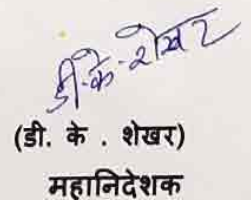 डी.के.शेखर
(डी. के . शेखर)
महानिदेशक